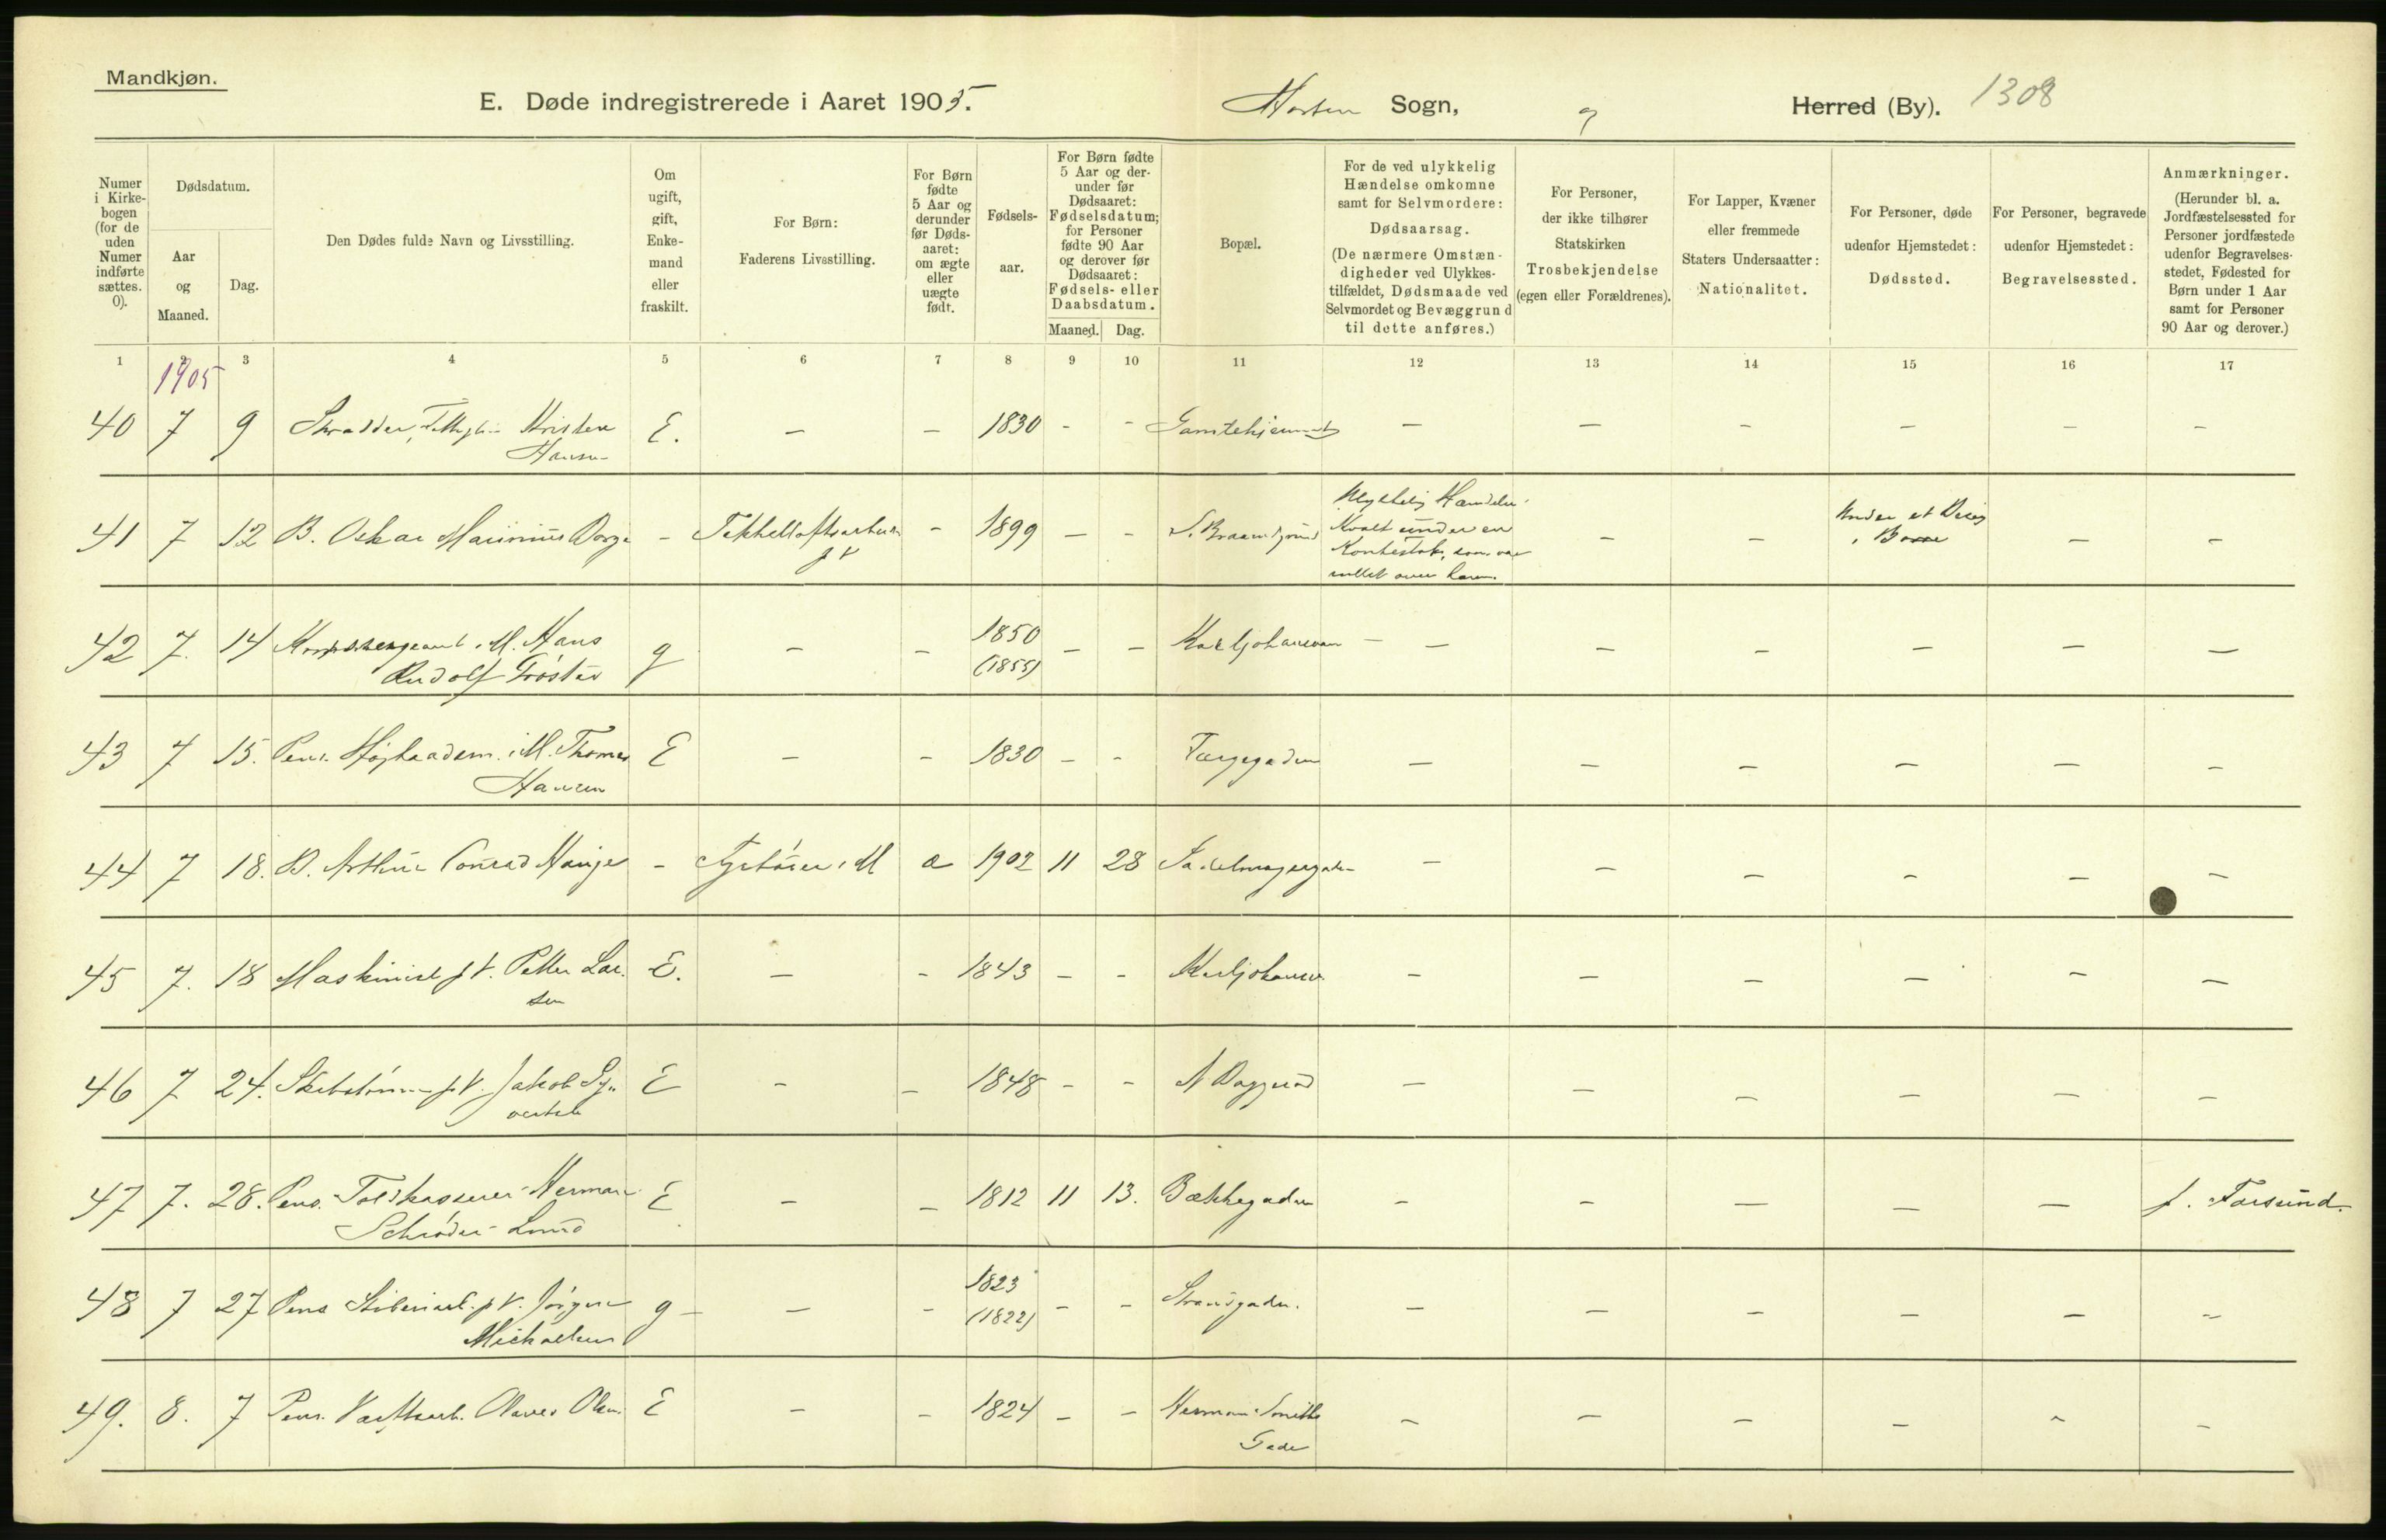 Mandkjøn.
E. Døde indregistrerede i Aaret 1905.
Horten Sogn, og Herred (By). 1308
Numer i Kirkebogen (for de uden Numer indførte sættes. 0).
Dødsdatum.
Aar og Maaned.
Dag.
Den Dødes fulde Navn og Livsstilling.
Om ugift, gift, Enkemand eller fraskilt.
For Børn: Faderens Livsstilling.
For Børn fødte 5 Aar og derunder før Dødsaaret: om ægte eller uægte født.
Fødselsaar.
For Børn fødte 5 Aar og derunder før Dødsaaret: Fødselsdatum; for Personer fødte 90 Aar og derover før Dødsaaret: Fødsels- eller Daabsdatum.
Maaned. Dag.
Bopæl.
For de ved ulykkelig Hændelse omkomne samt for Selvmordere: Dødsaarsag. (De nærmere Omstændigheder ved Ulykkestilfældet, Dødsmaade ved Selvmordet og Bevæggrund til dette anføres.)
For Personer, der ikke tilhører Statskirken Trosbekjendelse (egen eller Forældrenes).
For Lapper, Kvæner eller fremmede Staters Undersaatter: Nationalitet.
For Personer, døde udenfor Hjemstedet: Dødssted.
For Personer, begravede udenfor Hjemstedet: Begravelsessted.
Anmærkninger. (Herunder bl. a. Jordfæstelsessted for Personer jordfæstede udenfor Begravelsesstedet, Fødested for Børn under 1 Aar samt for Personer 90 Aar og derover.)
1 2 3 4 5 6 7 8 9 10 11 12 13 14 15 16 17
1905
40 7 9 Kristen E. – – 1830 - - Gamlehjemmet – – – – – –
Hansen
41 7 12 B. Oskar Marinius - - 1899 – - Ulykkelig Hændelse. – – Under et – –
Kvalt under en i Borre
som var
rullet over ham.
42 7. 14 M. Hans g – – 1850 – – Karljohansvern – – – – – –
Rudolf (1855)
43 7 15. Pens. i M. Thomas E – - 1830 – - Færgegaden – – – – – –
Hansen
44 7 18. B. Arthur Conrad - Fyrbøder i M æ 1902 11 28 Sadelmagergaden – – – – – –
45 7. 18 Maskinist p V. Petter Lar- E. – - 1843 – - Karljohansv. – – – – – –
sen
46 7 24. p V. Jakob E - – 1848 - - – – – – – –
47 7. 28. Pens. Toldkasserer Herman E – – 1812 11 13. Bækkegaden – – – – – f. Farsund.
Schrøder Lund
48 7 27 Pens p V. Jørgen g – – - 1823 - - Strandgaden. – – – – – –
Michaelsen (1822)
49. 8. 7 Pens. Værftsarb. Olaves Olsen E – - 1824 – – Herman Smiths – – – – – –
Gade